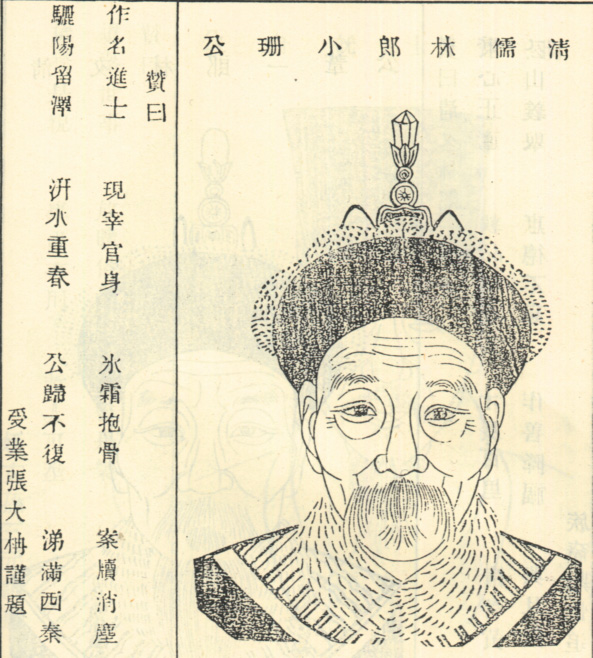 清儒林郎小珊公
贊曰
作名進士 現宰官身 氷霜抱骨 案牘消塵
驪陽留澤 汧水重春 公歸不復 涕滿西秦
受業張大柟謹題